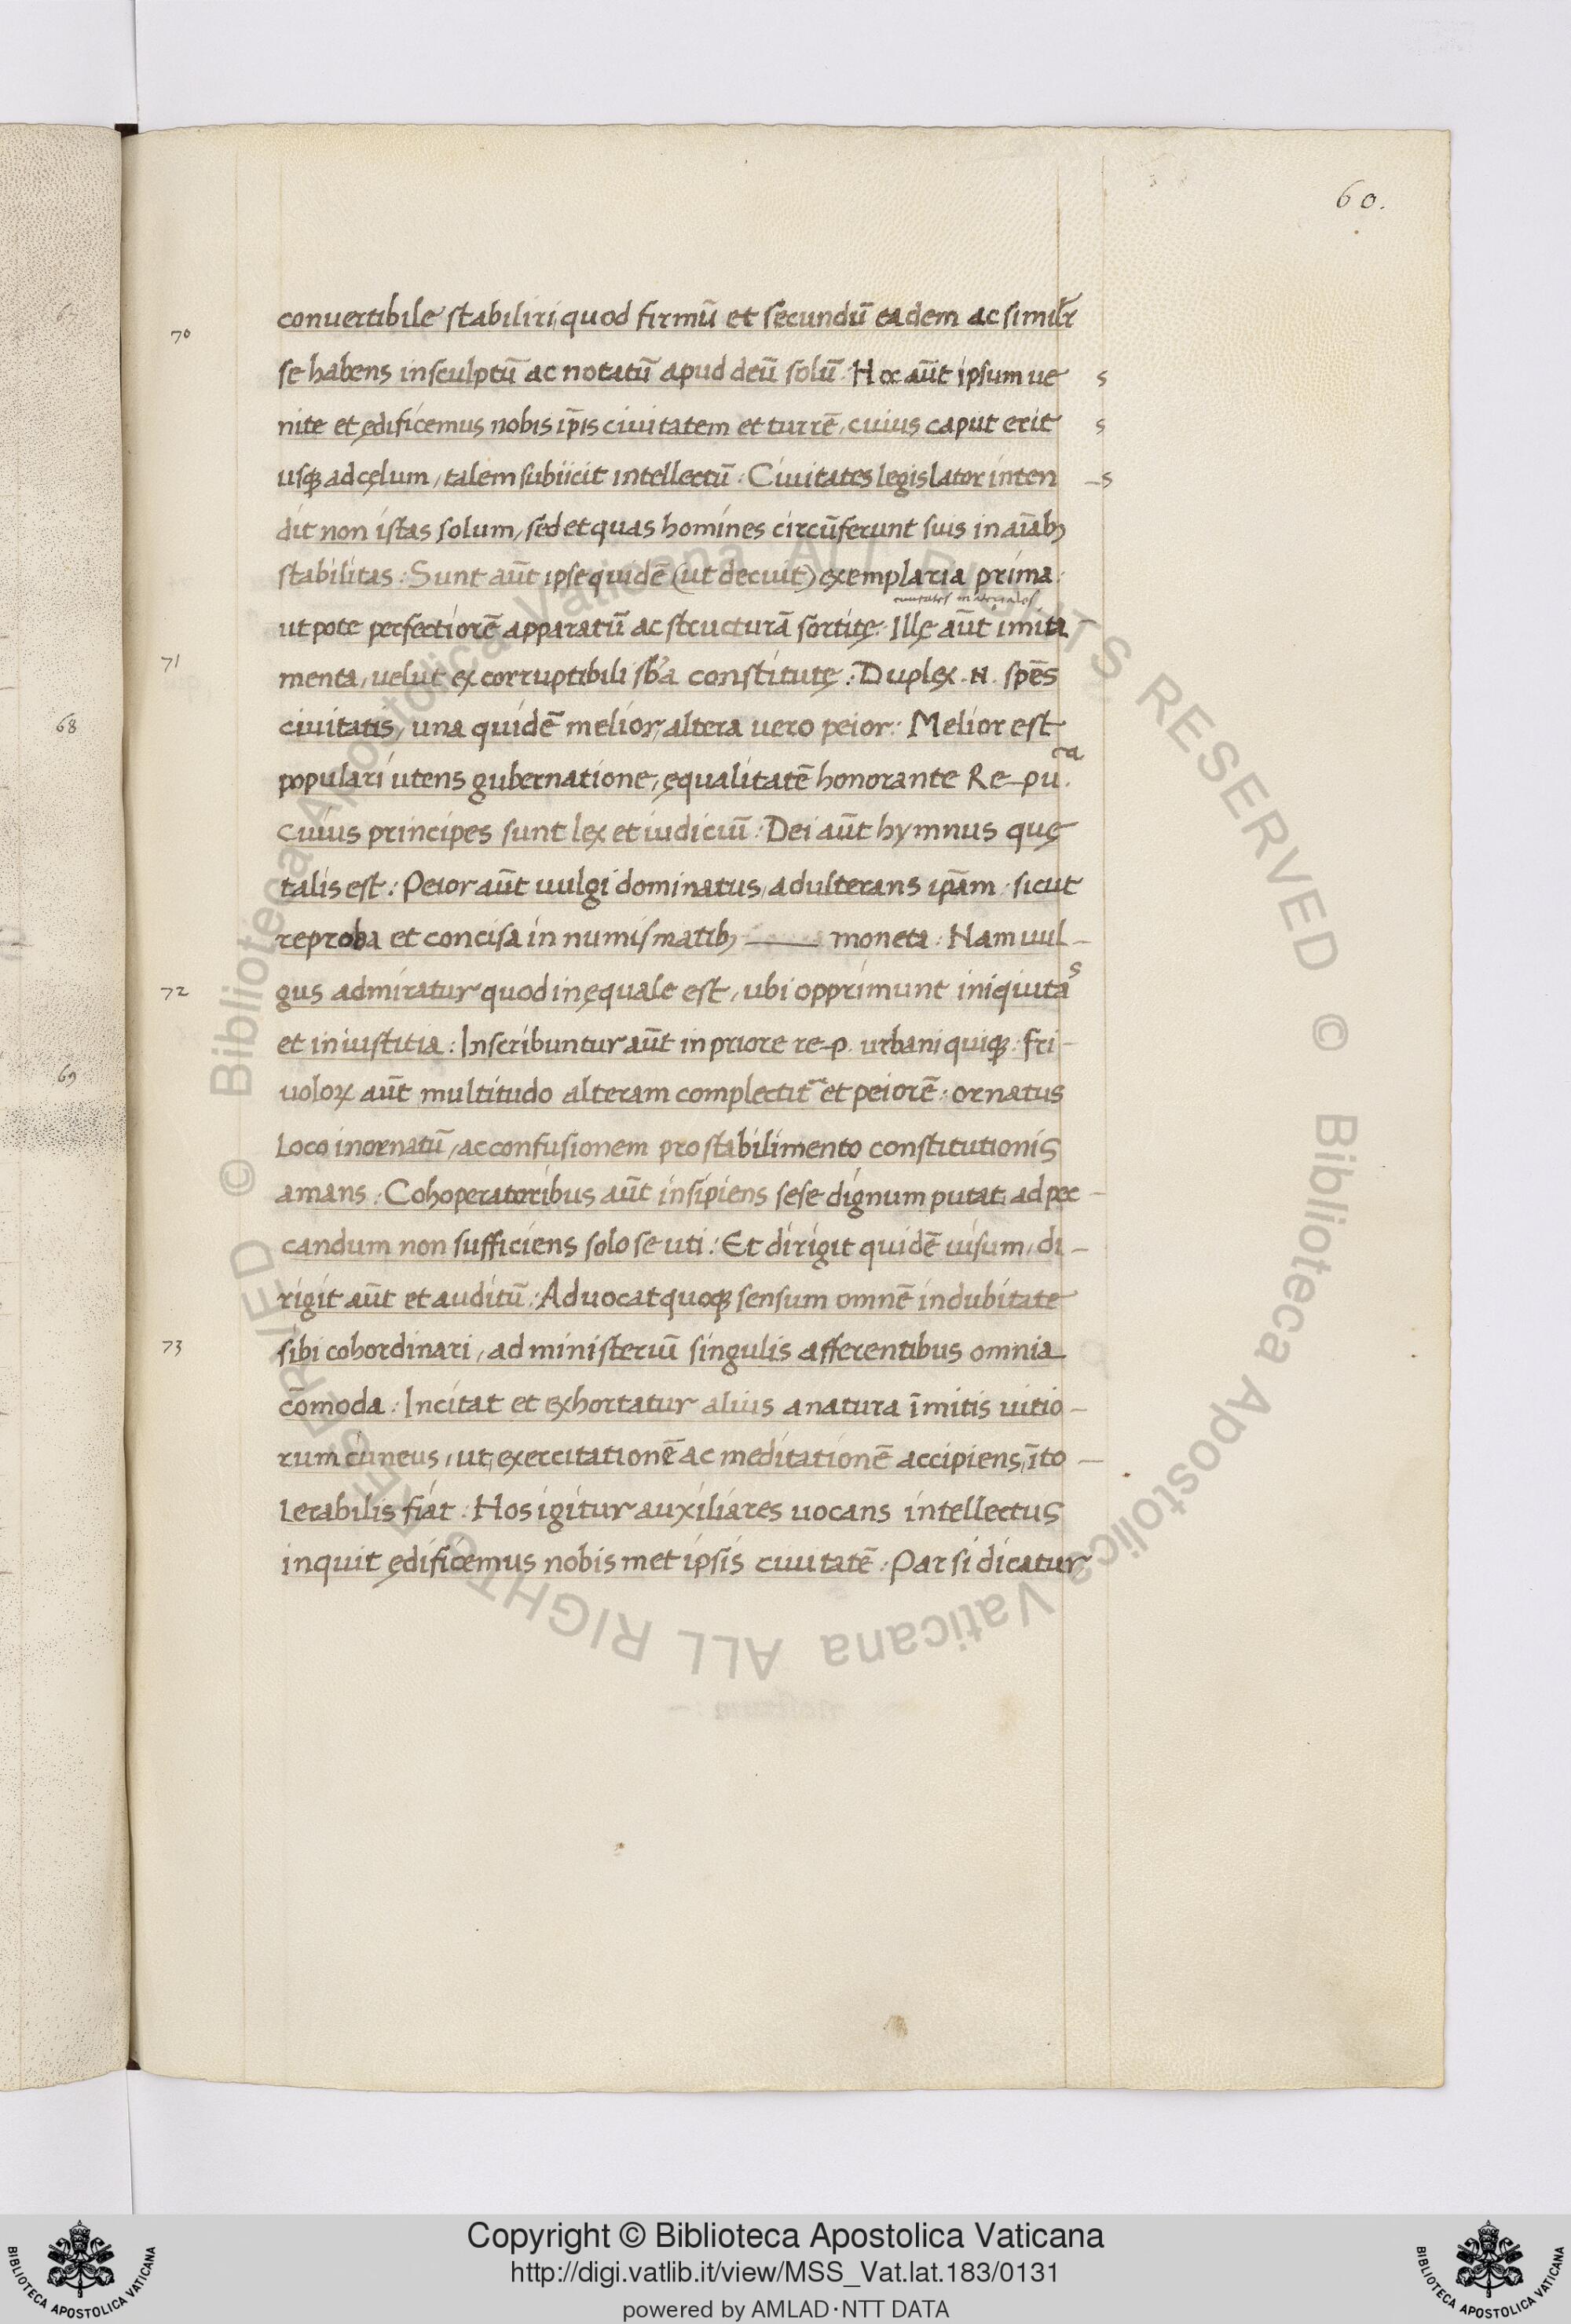 60.
70
conuertibile stabiliri, quod firmū et secundū eadem ac simil̄r
se habens insculptū ac notatū apud deū solū. Hoc aūt ipsum ue s
nite et ędificemus nobis ip̄is ciuitatem et turrē, cuius caput erit s
usq; ad cęlum, talem subiicit intellectū: Ciuitates legislator inten –s
dit non istas solum, sed et quas homines circūferunt suis in aīab;
stabilitas: Sunt aūt ipse quidē (ut decuit) exemplaria prima:
utpote perfectiorē apparatū ac structurā sortitę: Illę aūt imita –
71
menta, uelut ex corruptibili sb̄a constitutę: Duplex .N. sp̄es
68
ciuitatis, una quidē melior, altera uero peior: Melior est
populari utens gubernatione, ęqualitatē honorante Re–pu.ca
cuius principes sunt lex et iudiciū: Dei aūt hymnus quę
talis est: Peior aūt uulgi dominatus, adulterans ip̄am: sicut
reproba et concisa in numismatib; —— moneta: Nam uul –
72
gus admiratur quod inęquale est, ubi opprimunt iniquitas
et iniustitia: Inscribuntur aūt in priore re–p. urbani quiq;: fri –
69
uoloꝝ aūt multitudo alteram complectit̄ et peiorē: ornatus
loco inornatū, ac confusionem pro stabilimento constitutionis
amans: Cohoperatoribus aūt insipiens sese dignum putat, ad pec –
candum non sufficiens solo se uti: Et dirigit quidē uisum, di –
rigit aūt et auditū: Aduocat quoq; sensum omnē indubitate
73
sibi cohordinari, ad ministeriū singulis afferentibus omnia
cōmoda: Incitat et exhortatur alius a natura īmitis uitio –
rum cuneus, ut exercitationē ac meditationē accipiens, īto –
lerabilis fiat: Hos igitur auxiliares uocans intellectus
inquit ędificemus nobis met ipsis ciuitatē: Par si dicatur
© Biblioteca Apostolica Vaticana ALL RIGHTS RESERVED © Biblioteca Apostolica Vaticana ALL RIGHTS RESERVED
Copyright © Biblioteca Apostolica Vaticana
http://digi.vatlib.it/view/MSS_Vat.lat.183/0131
powered by AMLAD·NTT DATA
BIBLIOTECA APOSTOLICA VATICANA
BIBLIOTECA APOSTOLICA VATICANA